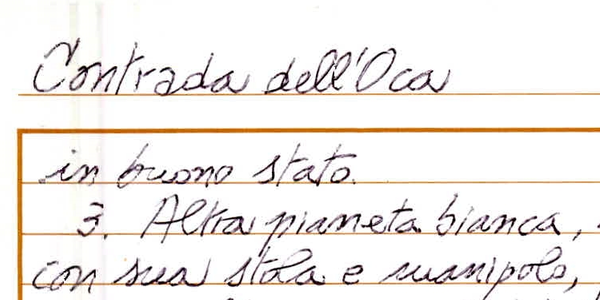 Contrada dell'Oca
in buono stato.
3. Altra pianeta bianca,
con sua stola e manipolo,